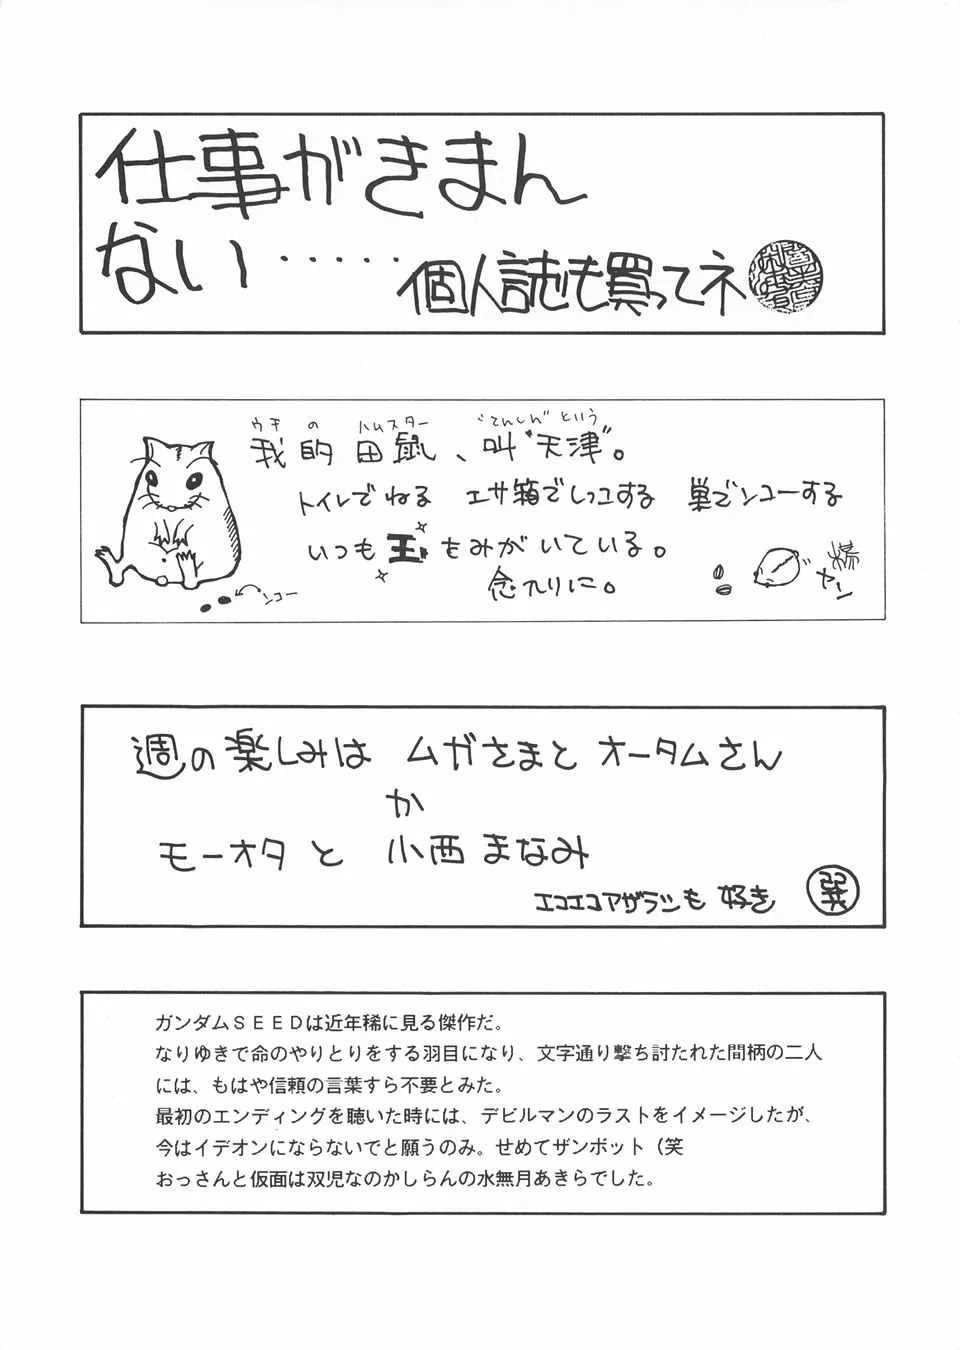 仕事がきまん
ない・・・・・個人誌も買ってネ
ウチ の ハムスター 、 "てんしん" という
我的田鼠、叫"天津"。
トイレでねる エサ箱でしっコする 巣でンコーする
いつも玉をみがいている。
念入りに。
ンコー
ヤーン
週の楽しみは ムガさまと オータムさん
か
モーオタ と 小西 まなみ
エコエコアザラシも 好き
巽
ガンダムSEEDは近年稀に見る傑作だ。
なりゆきで命のやりとりをする羽目になり、文字通り撃ち討たれた間柄の二人
には、もはや信頼の言葉すら不要とみた。
最初のエンディングを聴いた時には、デビルマンのラストをイメージしたが、
今はイデオンにならないでと願うのみ。せめてザンボット（笑
おっさんと仮面は双児なのかしらんの水無月あきらでした。